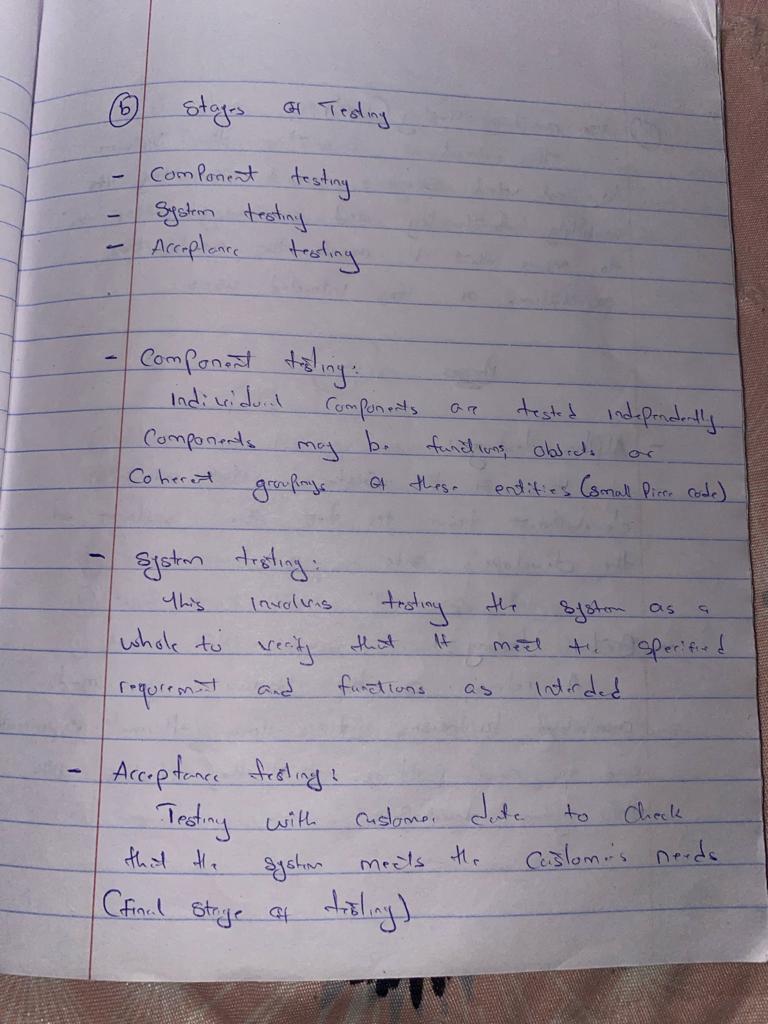 (b) Stages of Testing
- Component testing
- System testing
- Acceptance testing
- Component testing:
Individual Components are tested independently
Components may be functions, objects or
Coherent groupings of these entities (small Piece code)
- System testing:
This involves testing the system as a
whole to verify that it meet the specified
requirement and functions as intended
- Acceptance testing:
Testing with customer data to check
that the system meets the customer's needs
(final stage of testing)